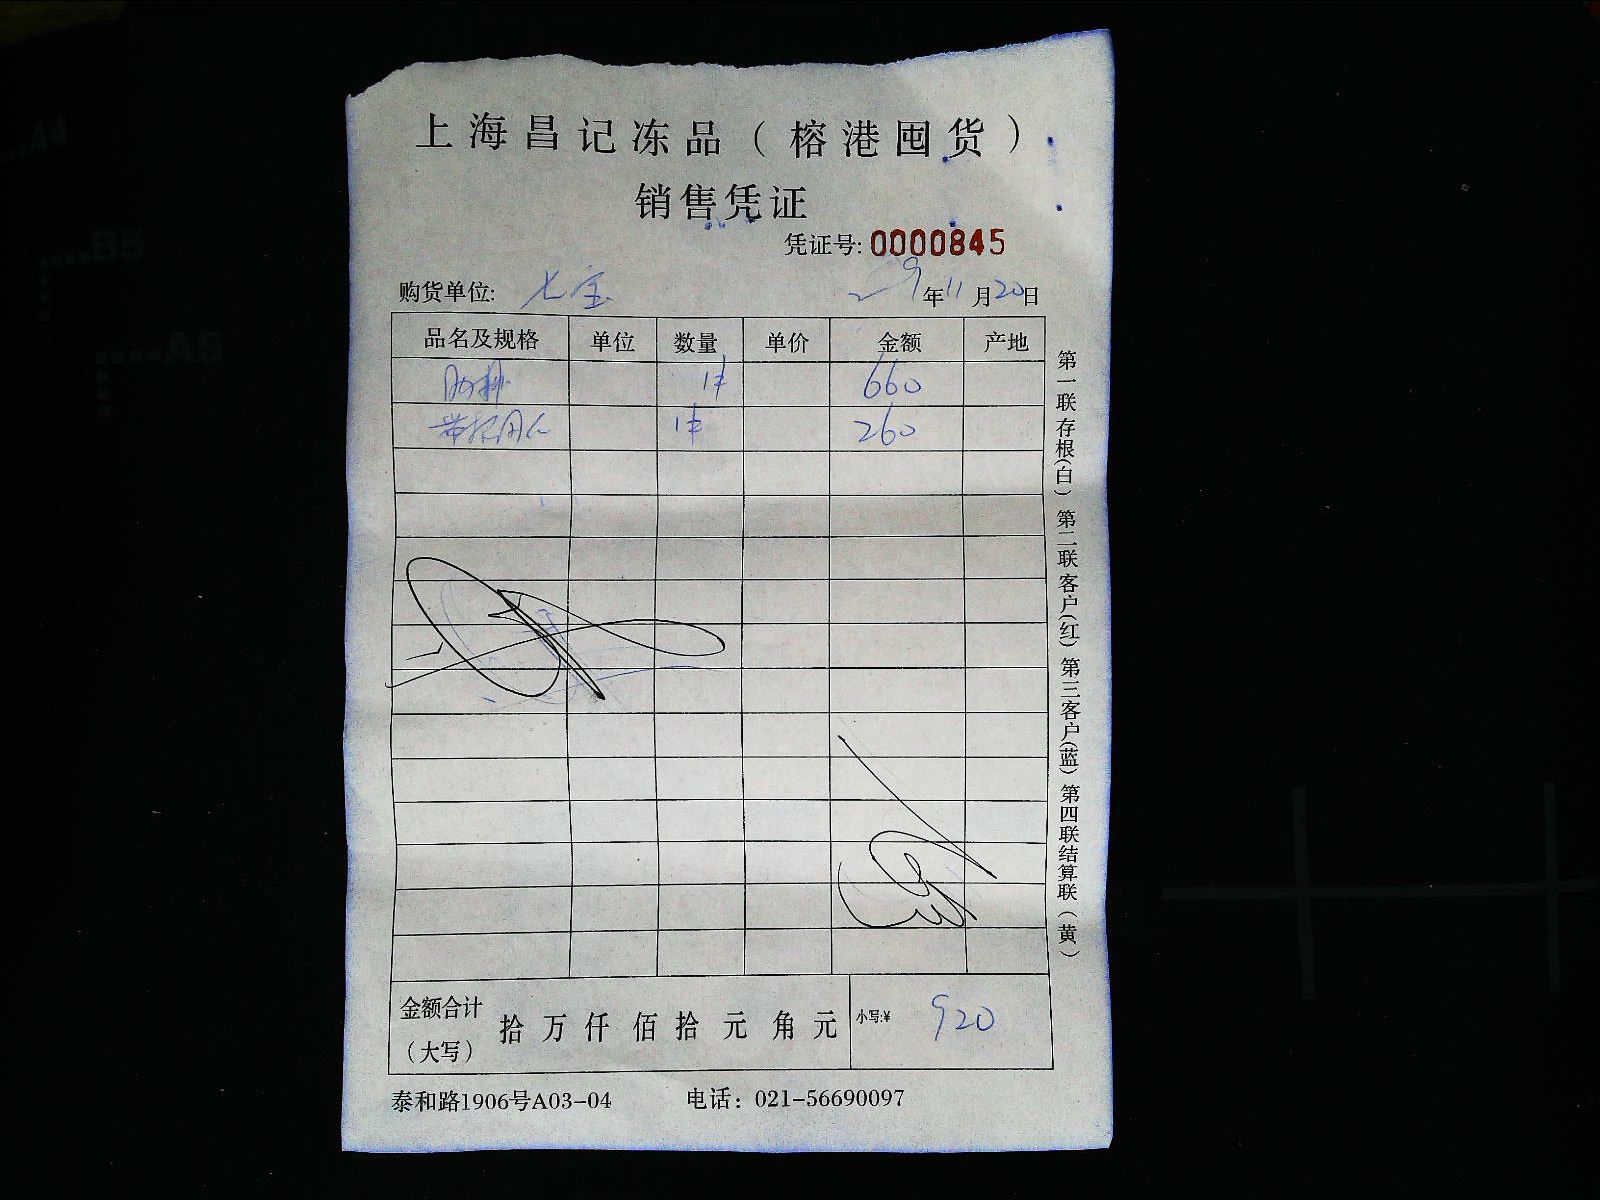 上海昌记冻品（榕港囤货）
销售凭证
凭证号: 0000845
购货单位: 七宝 年11月20日
品名及规格 单位 数量 单价 金额 产地
肋排 1件 660
1件 260
金额合计（大写） 拾万仟佰拾元角元 小写:¥ 920
泰和路1906号A03-04 电话：021-56690097
第一联存根（白）第二联客户（红）第三客户（蓝）第四联结算联（黄）
A4
B5
A5